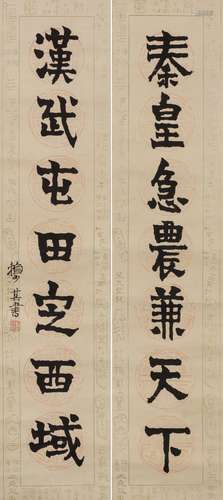 秦皇急農兼天下
漢武屯田定西域
其書